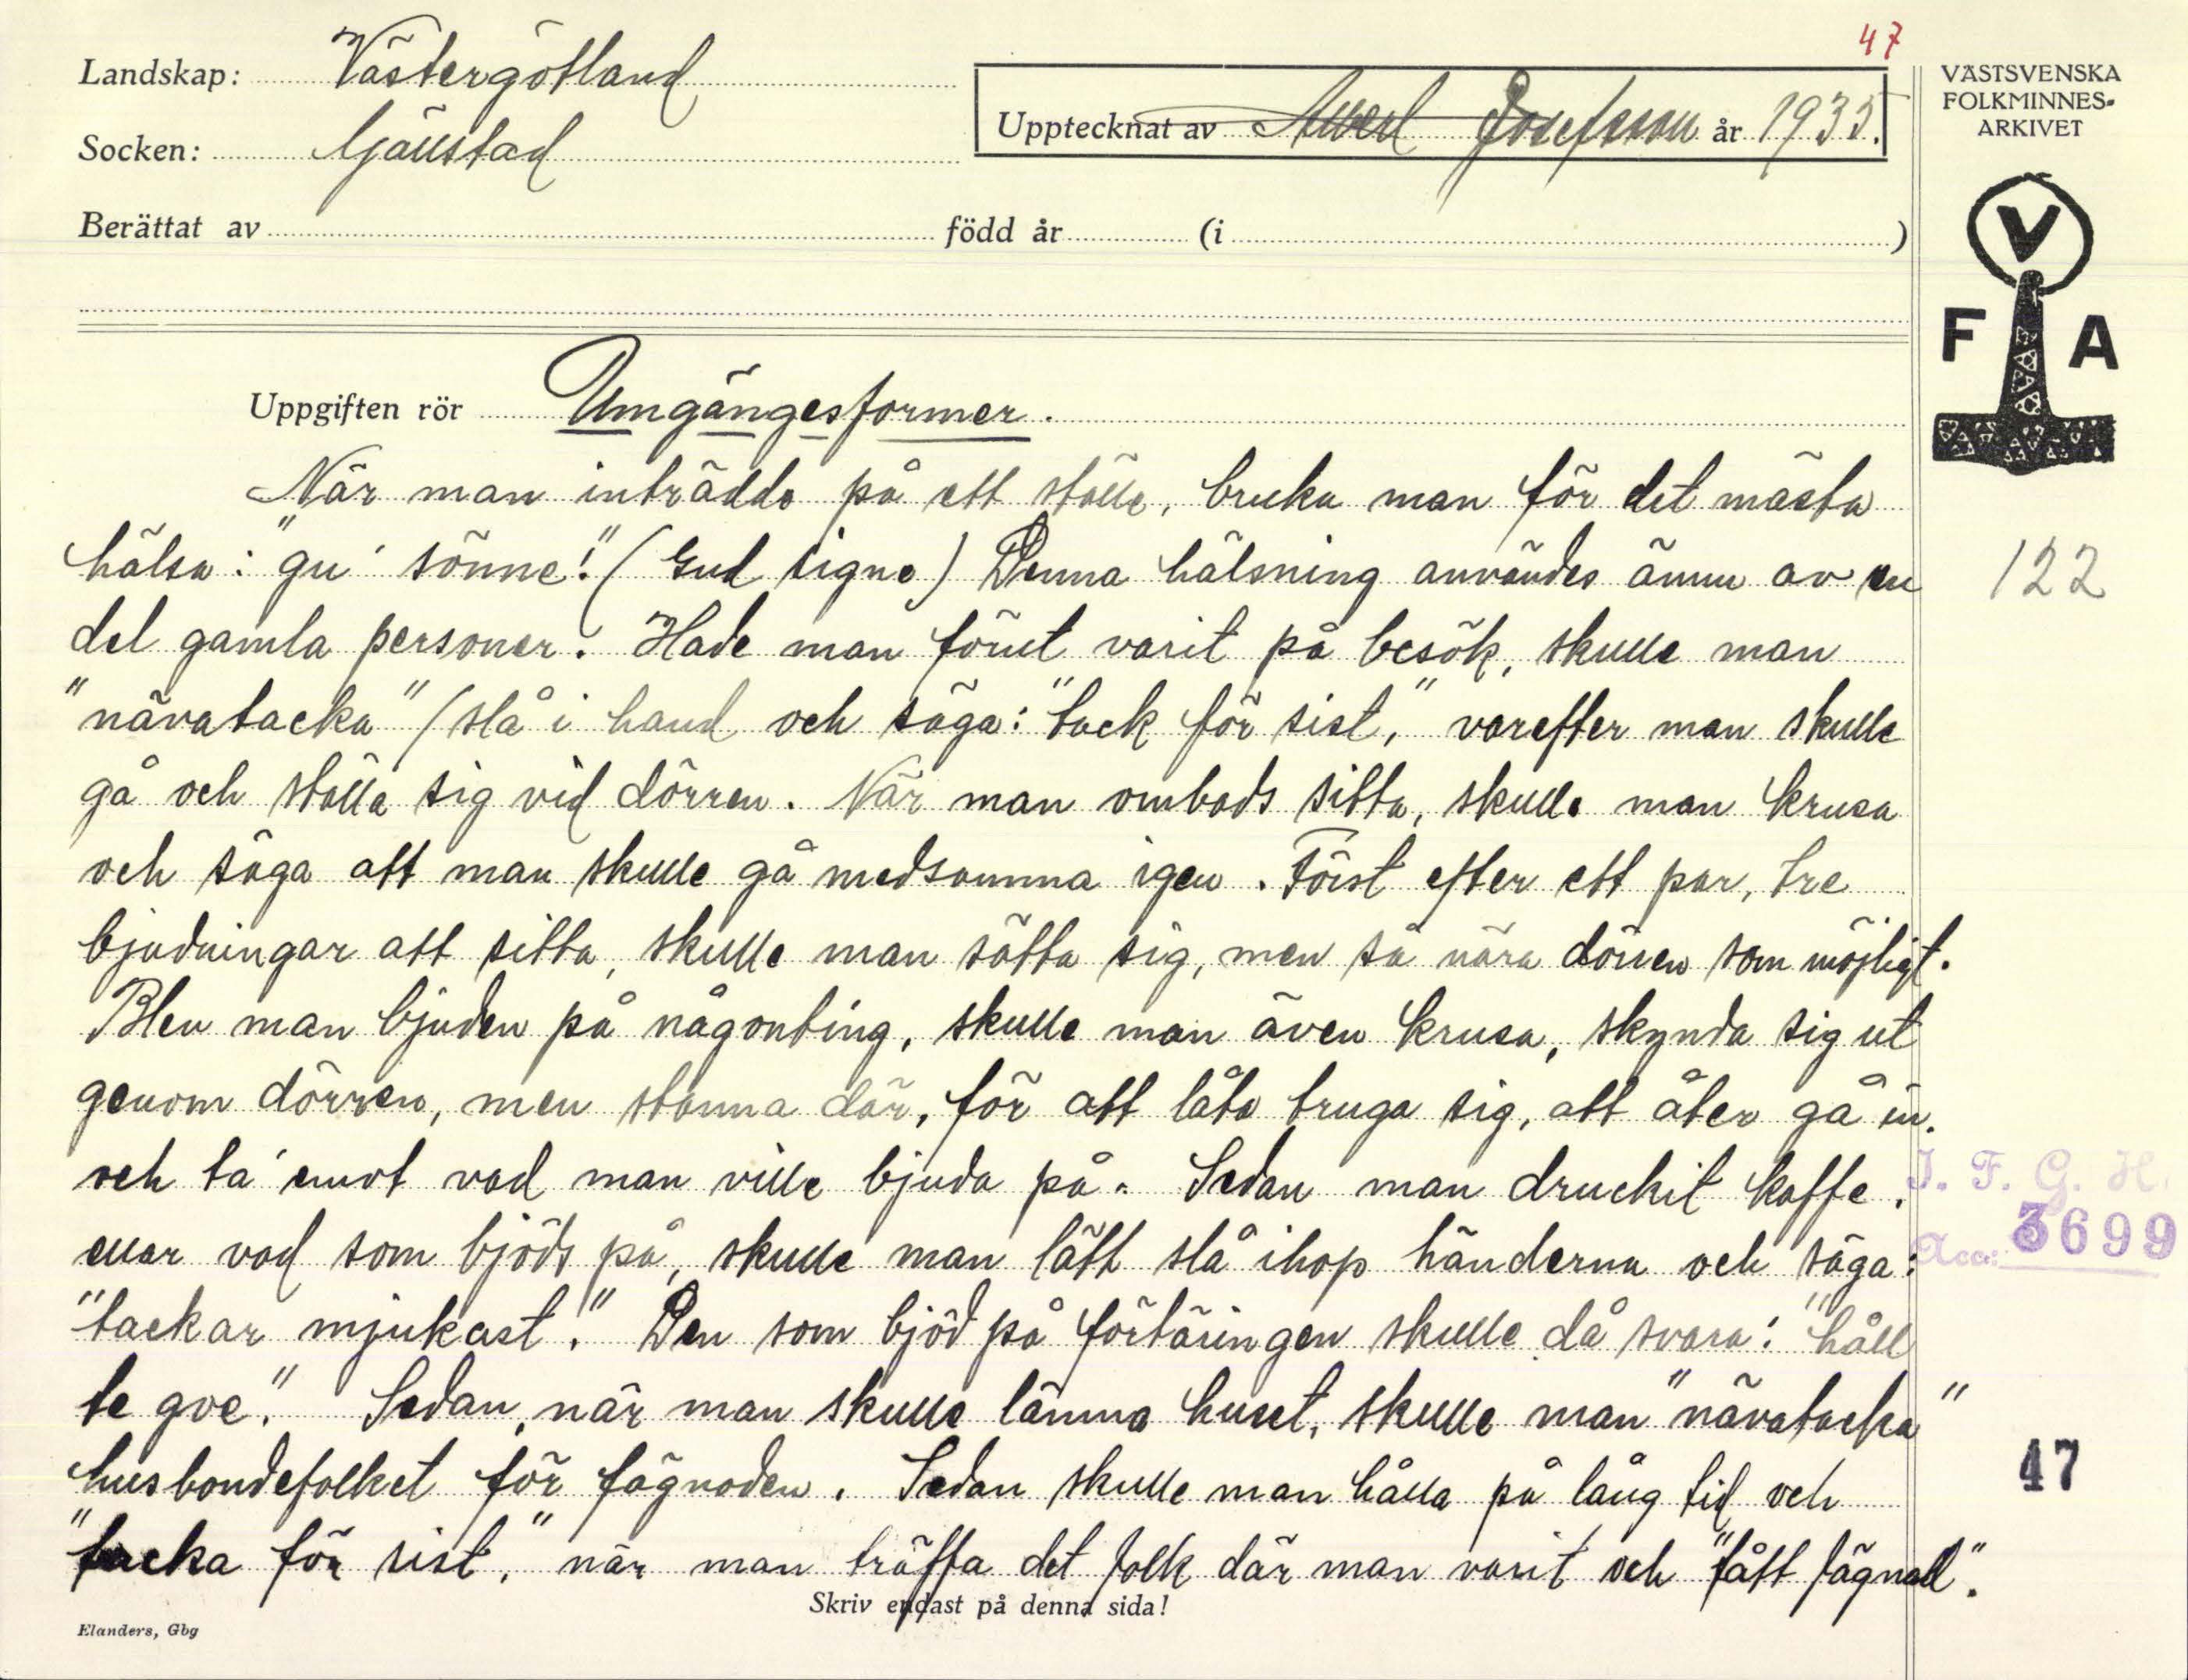 47
Landskap: Västergötland
Socken: Gällstad
Upptecknat av Albert Josefsson år 1935.
VÄSTSVENSKA
FOLKMINNES-
ARKIVET
Berättat av född år (i )
V
F A
Uppgiften rör Umgängesformer.
När man inträdde på ett ställe, bruka man för det mästa
hälsa: "gu' sönne!" (Gud signe) Denna hälsning användes ännu av en
122
del gamla personer. Hade man förut varit på besök, skulle man
"nävatacka" (slå i hand och säga: "tack för sist," varefter man skulle
gå och ställa sig vid dörren. När man ombads sitta, skulle man krusa
och säga att man skulle gå medsamma igen. Först efter ett par, tre
bjudningar att sitta, skulle man sätta sig, men så nära dörren som möjligt.
Blev man bjuden på någonting, skulle man även krusa, skynda sig ut
genom dörren, men stanna där, för att låta truga sig, att åter gå in.
och ta' emot vad man ville bjuda på. Sedan man druckit kaffe.
I. F. G. H.
eller vad som bjöds på, skulle man lätt slå ihop händerna och säga:
Acc: 3699
"tackar mjukast." Den som bjöd på förtäringen skulle då svara: "håll
te goe." Sedan, när man skulle lämna huset, skulle man "nävatacka"
husbondefolket för fägnaden. Sedan skulle man hålla på lång tid och
47
"tacka för sist," när man träffa det folk där man varit och "fått fägnad".
Skriv endast på denna sida!
Elanders, Gbg